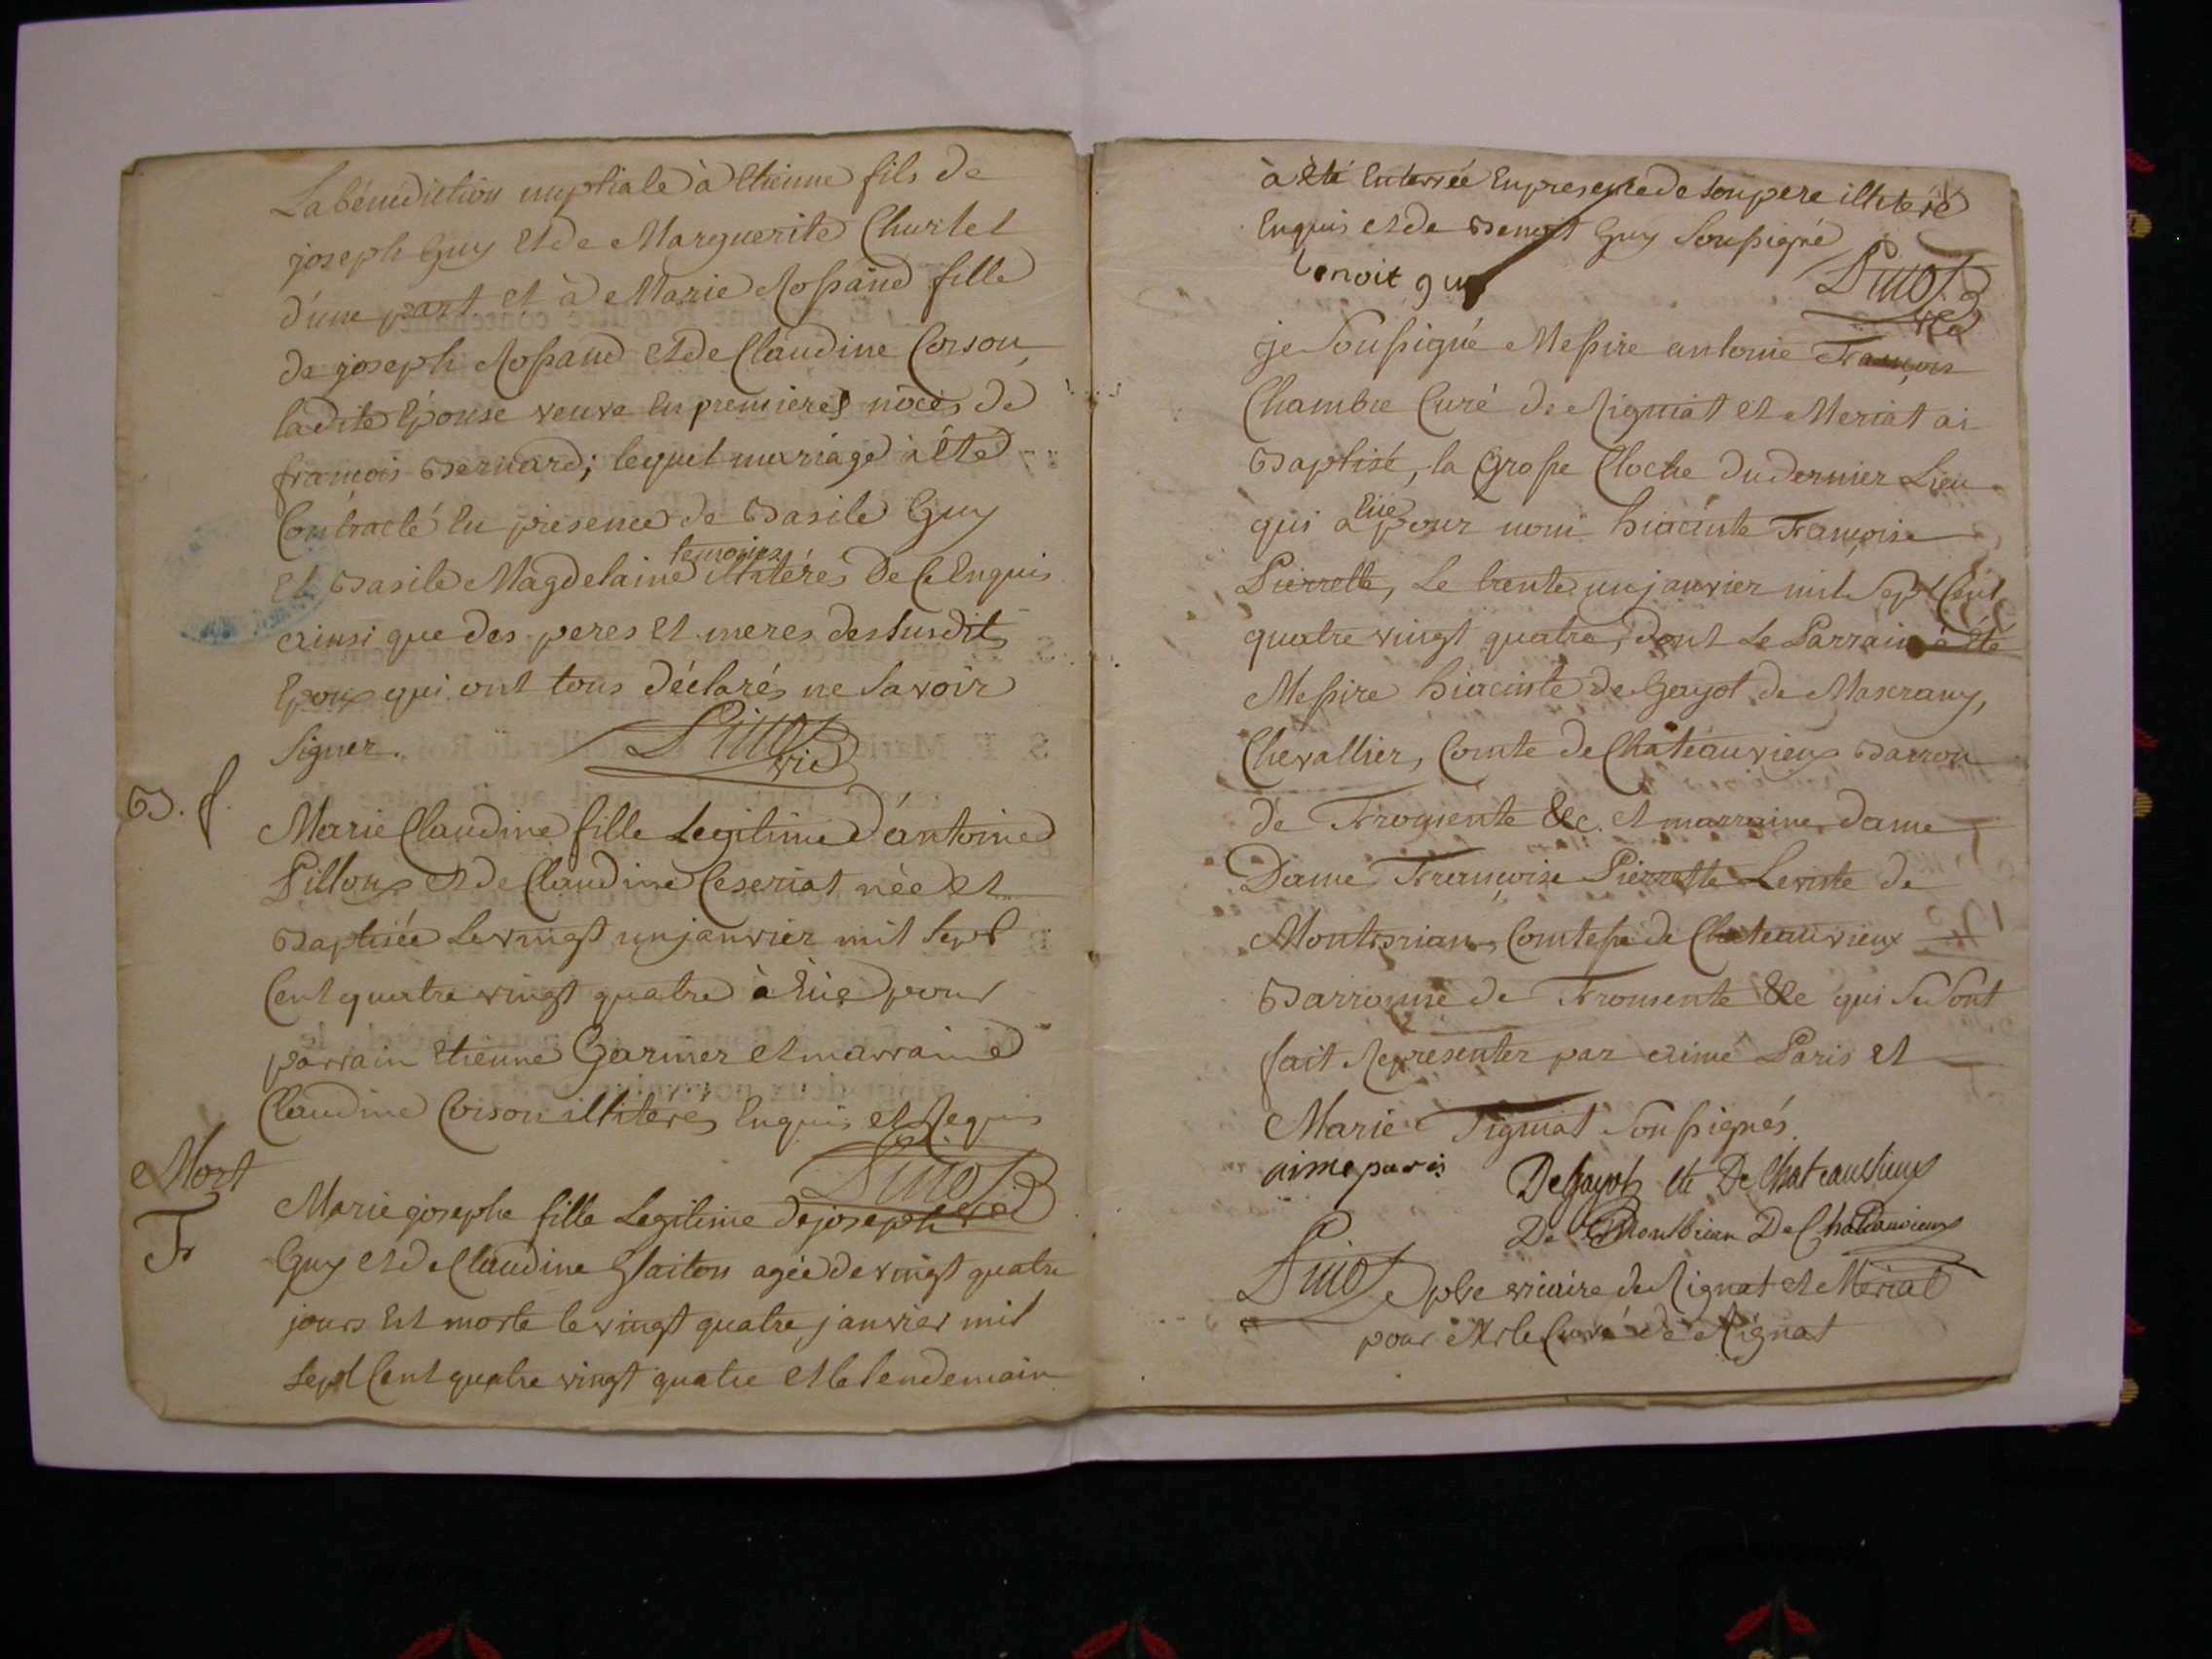 La bénédiction nuptiale à Etienne fils de
joseph Guy et de Marguerite Churlet
d'une part et à Marie Rossand fille
de joseph Rossand et de Claudine Corson,
ladite Epouse veuve en premieres nôces de
françois Bernard; lequel mariage à été
Contracté en présence de Basile Guy
et Basile Magdelaine temoins illitérés de ce Enquis
ainsi que des peres et meres des susdits
Epoux qui ont tous déclarés ne savoir
signer.
vic
B. f.
Marie Claudine fille Legitime d'antoine
Pilloux et de Claudine Ceseriat née et
Baptisée le vingt un janvier mil sept
Cent quatre vingt quatre à eüe pour
parrain Etienne Garnier et marraine
Claudine Corson illiterés Enquis et Requis
Mort
Marie josephe fille Legitime de joseph
Guy et de Claudine Glaiton agée de vingt quatre
jours est morte le vingt quatre janvier mil
sept Cent quatre vingt quatre et le lendemain
à été Enterrée En presence de son pere illiteré
Enquis et de Benoit Guy soussigné
benoit guy
vic
je soussigné Messire antoine François
Chambre Curé de Rigniat et Meriat ai
Baptisé, la Grosse Cloche du dernier Lieu
qui a eüe pour nom hiacinte Françoise
Pierrette, Le trente un janvier mil sept Cent
quatre vingt quatre, dont Le Parrain à été
Messire hiacinte de Gayot de Mascrany,
Chevallier, Comte de Chateauvieux Barron
de Fromente &c. et marraine dame
Dame Françoise Pierrette Leviste de
Montbrian, Comtesse de Chateauvieux
Barronne de Fromente &c qui se sont
fait Representer par aimé Paris et
Marie Tigniat soussignés.
aime paris
De Gayot de De Chateauvieux
De Montbrian De Chateauvieux
ptre vicaire de Rignat et Meriat
pour Mr le Curé de Rignat